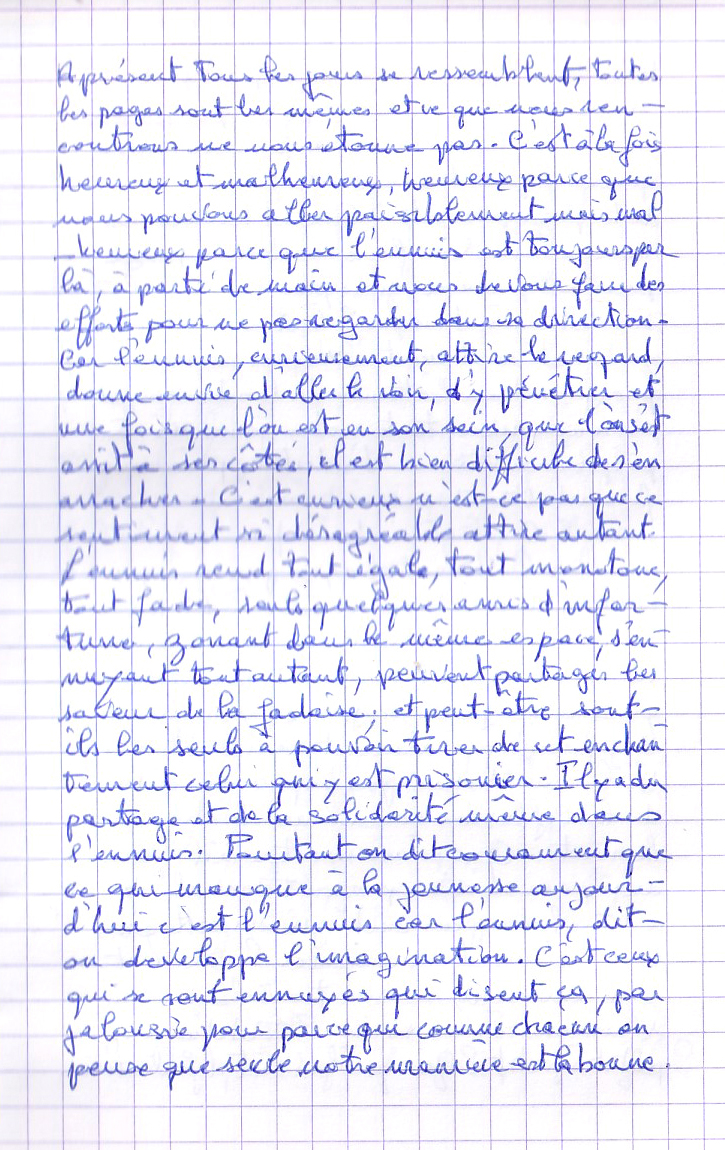 Aprésent tous les jours se ressemblent, toutes
les pages sont les mêmes et ce que nous ren-
controns ne nous étonne pas. C'est à la fois
heureux et malheureux, heureux parce que
nous pouvons aller paisiblement mais mal
-heureux parce que l'ennuis est toujours par
là, à porté de main et nous devons faire des
efforts pour ne pas regarder dans sa direction.
Car l'ennuis, curieusement, attire le regard,
donne envie d'aller le voir, d'y pénétrer et
une fois que l'on est en son sein, que l'on s'est
assit à ses côtés, il est bien difficile de s'en
arracher. C'est curieux n'est-ce pas que ce
sentiment si désagréable attire autant.
L'ennuis rend tout égale, tout monotone,
tout fade, seuls quelques amis d'infor-
tune, zonant dans le même espace, s'en-
nuyant tout autant, peuvent partager les
saveur de la fadaise, et peut-être sont-
ils les seuls à pouvoir tirer de cet enchan
tement celui qui y est prisonier. Il y a du
partage et de la solidarité même dans
l'ennuis. Pourtant on dit couramment que
ce qui manque à la jeunesse aujour-
d'hui c'est l'ennuis car l'ennuis, dit-
on developpe l'imagination. C'est ceux
qui se sont ennuyés qui disent ça, par
jalousie pour parce que comme chacun on
pense que seule notre manière est la bonne.